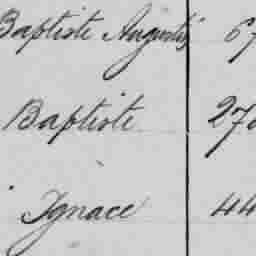 Baptiste Augustis 67
Baptiste 27
Ignace 44